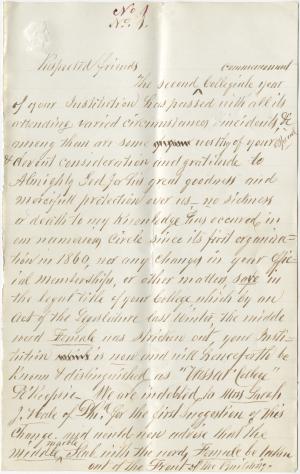 No 1
No. 1.
Respected friends
commencement
The second Collegiate year
of your Institution has passed with all its
attending varied circumstances & incidents &
among them are some worthy of your
& devout consideration and gratitude to
Almighty God for his great goodness and
merciful protection over us, no sickness
or death to my Knowledge has occured in
our numerous Circle since its first organiza-
tion in 1860, nor any changes in your offi-
cial Memberships, or other matters, save in
the legal title of your College which by an
act of the Legislature last Winter the middle
word Female was stricken out, your Insti-
tution is now and will henceforth be
Known & distinguished as "Vassar College"
Po'Keepsie. We are indebted to Mrs Sarah
J. Hale of Pha. for the first suggestion of this
Change, and would now advise that the
middle marble Slab with the word Female be taken
out of the Front of the Building.